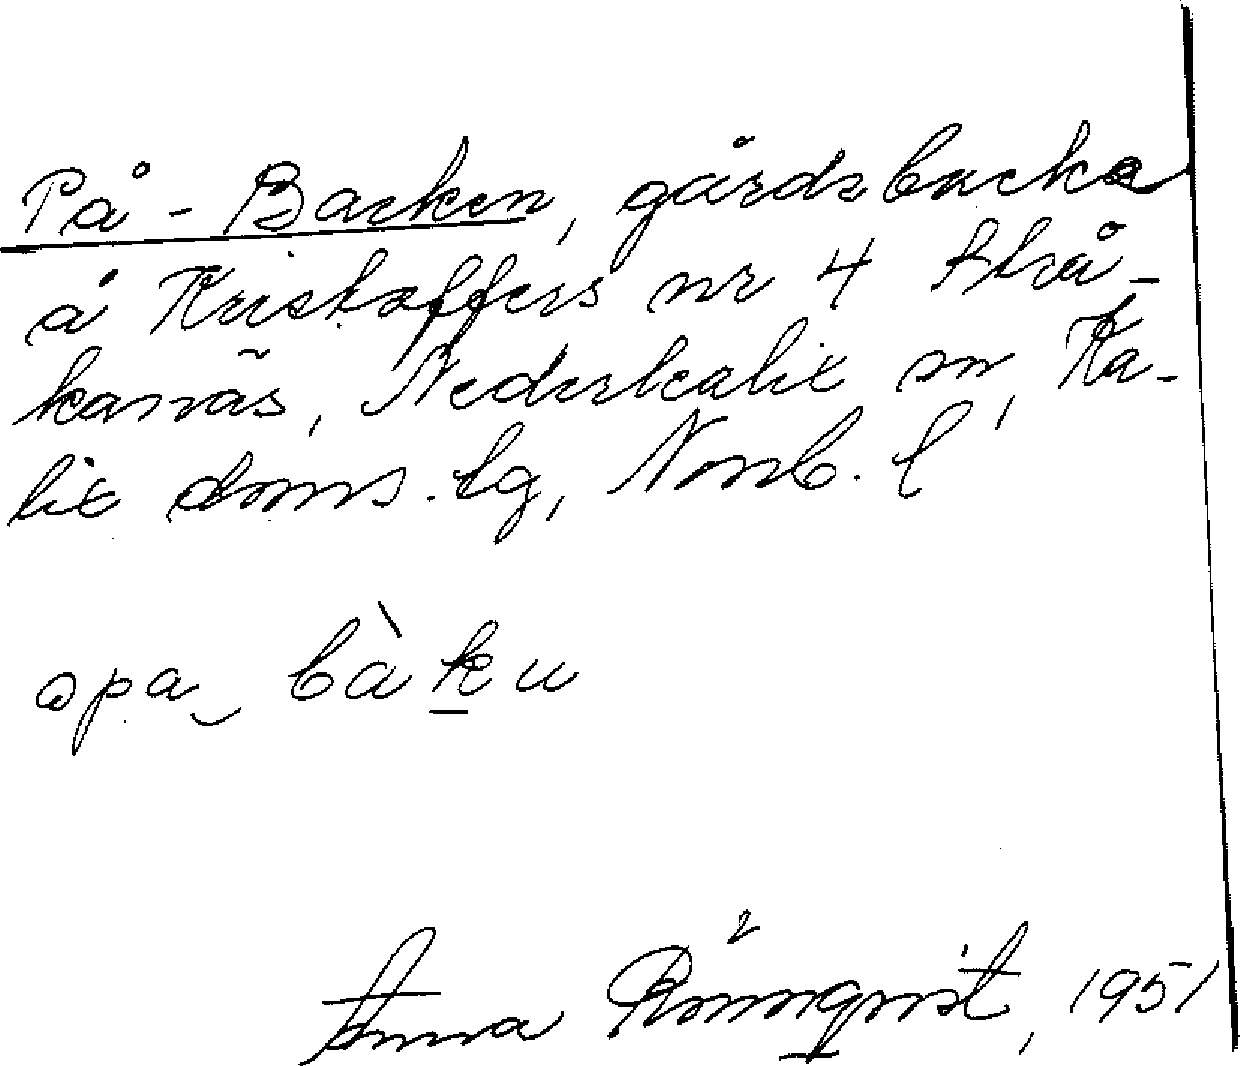 På-Backen, gårdsbacke
å Kristoffers nr 4 Strå-
kanäs, Nederkalix sn, Ka-
lix doms.lg, Norrb. l
opa bàku
Anna Rönnqvist, 1951